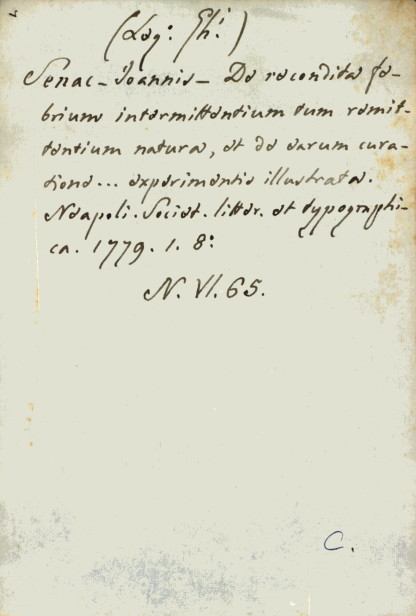 (Leg: Gh:)
Senac-Ioannis- De recondita fe-
brium intermittentium tum remit-
tentium natura, et de earum cura-
tione... experimentis illustrata.
Neapoli. Societ. litter. et typographi-
ca. 1779. 1. 8:
N. VI. 65.
C.